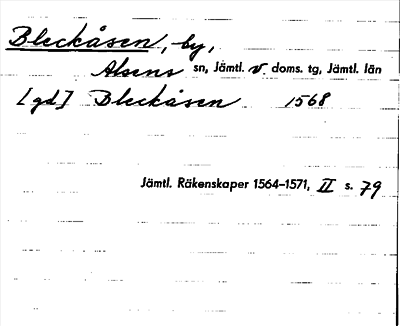 Bleckåsen, by,
Alsens sn, Jämtl. v. doms. tg, Jämtl. län
[gd] Bleckåsen 1568
Jämtl. Räkenskaper 1564–1571, II s. 79